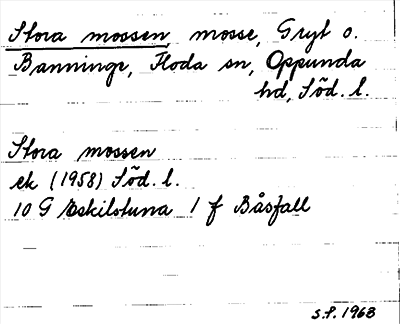 Stora mossen mosse, Gryt o.
Banninge, Floda sn, Oppunda
hd, Söd. l.
Stora mossen
ek (1958) Söd. l.
10 G Eskilstuna 1 f Båsfall
S.P. 1968